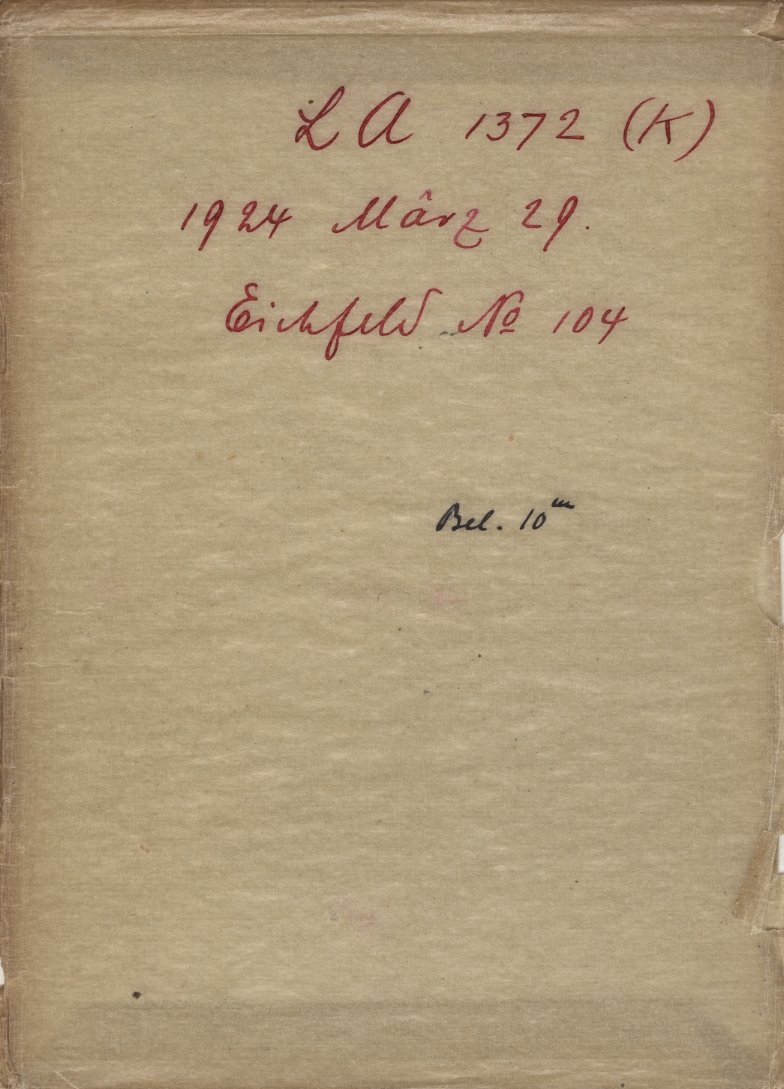 LA 1372 (K)
1924 März 29.
Eichfeld No 104
Bel. 10ᵐ